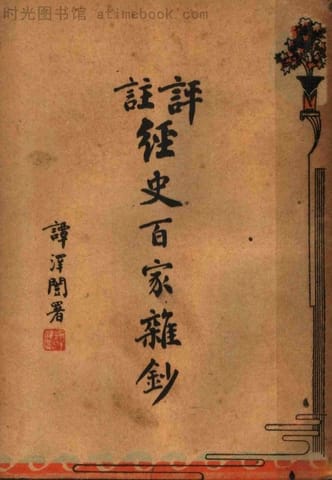 时光图书馆 atimebook.com
評註經史百家雜鈔
譚澤闓署